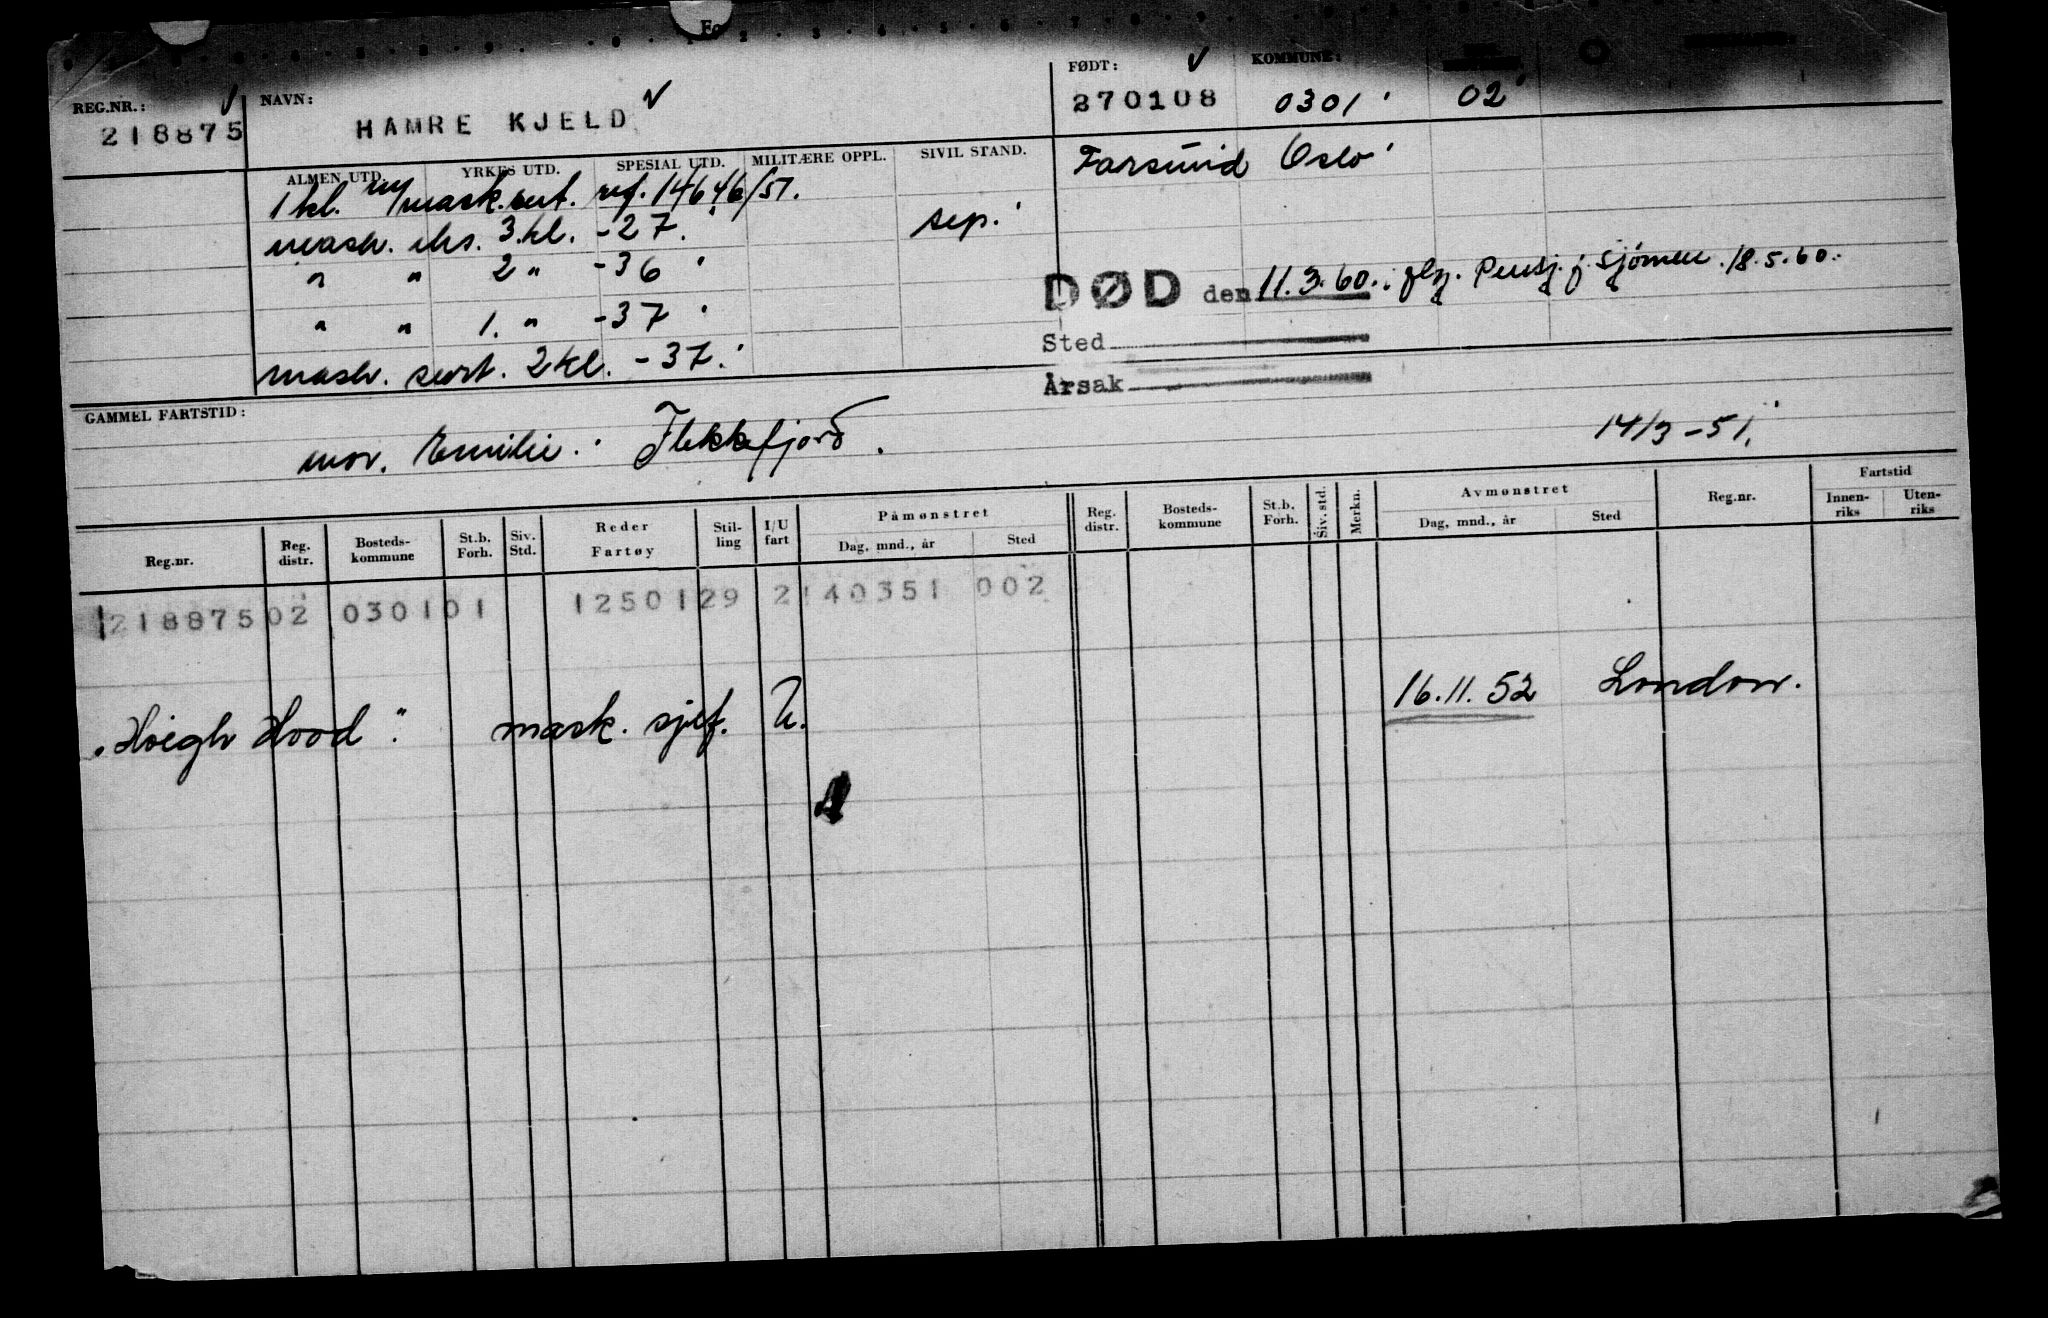 REG.NR.: NAVN: FØDT: KOMMUNE:
218875 HAMRE KJELD 270108 0301 02
ALMEN UTD. YRKES UTD. SPESIAL UTD. MILITÆRE OPPL. SIVIL STAND. Farsund Oslo
1 kl. m/mask.sert. ref. 14646/51.
mask. eks. 3.kl. -27. sep.
" " 2 " -36
DØD den 11.3.60. Pensj. f. sjømenn. 18.5.60.
" " 1. " -37
Sted
mask. sert. 2 kl. -37.
Årsak
GAMMEL FARTSTID:
mor. Emilie. Flekkefjord. 14/3-51.
Reg.nr. Reg. distr. Bosteds-kommune St.b. Forh. Siv. Std. Reder Fartøy Stil-ling I/U fart Påmønstret Dag, mnd., år Sted Reg. distr. Bosteds-kommune St.b. Forh. Siv. std. Merkn. Avmønstret Dag, mnd., år Sted Reg.nr. Fartstid Innen-riks Uten-riks
218875 02 0301 01 1250129 2 140351 002
"Høegh Hood". mask. sjef. U. 16.11.52 London.